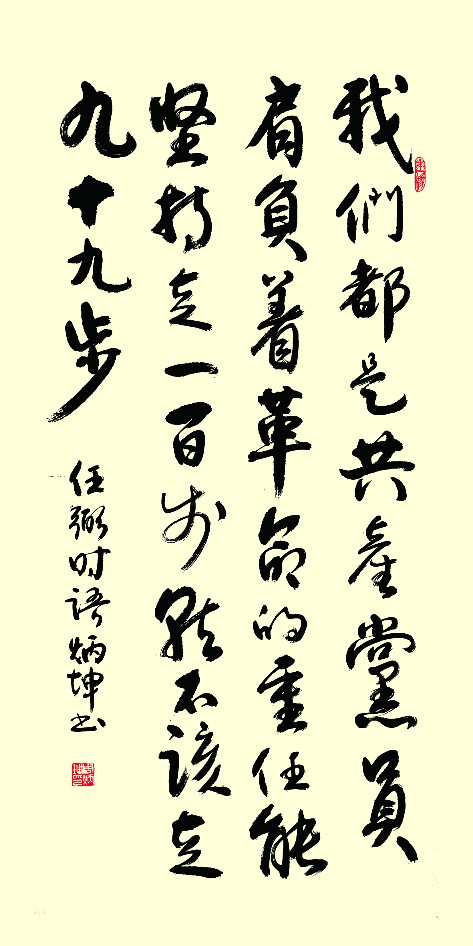 我們都是共產黨員
肩負着革命的重任能
坚持走一百步就不该走
九十九步
任弼时语炳坤书